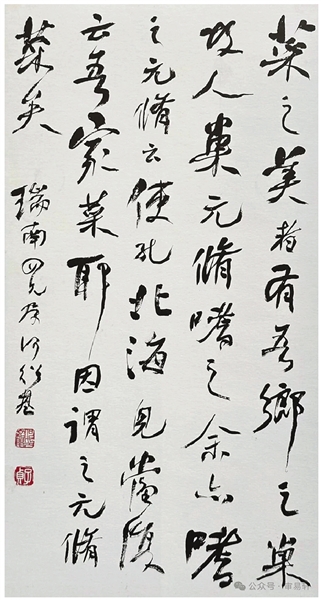 菜之美者有吾鄉之巢
故人巢元脩嗜之余亦嗜
之元脩云使孔北海見當復
云吾家菜耶因謂之元脩
菜矣 瑞南四兄屬何紹基
子貞
公众号